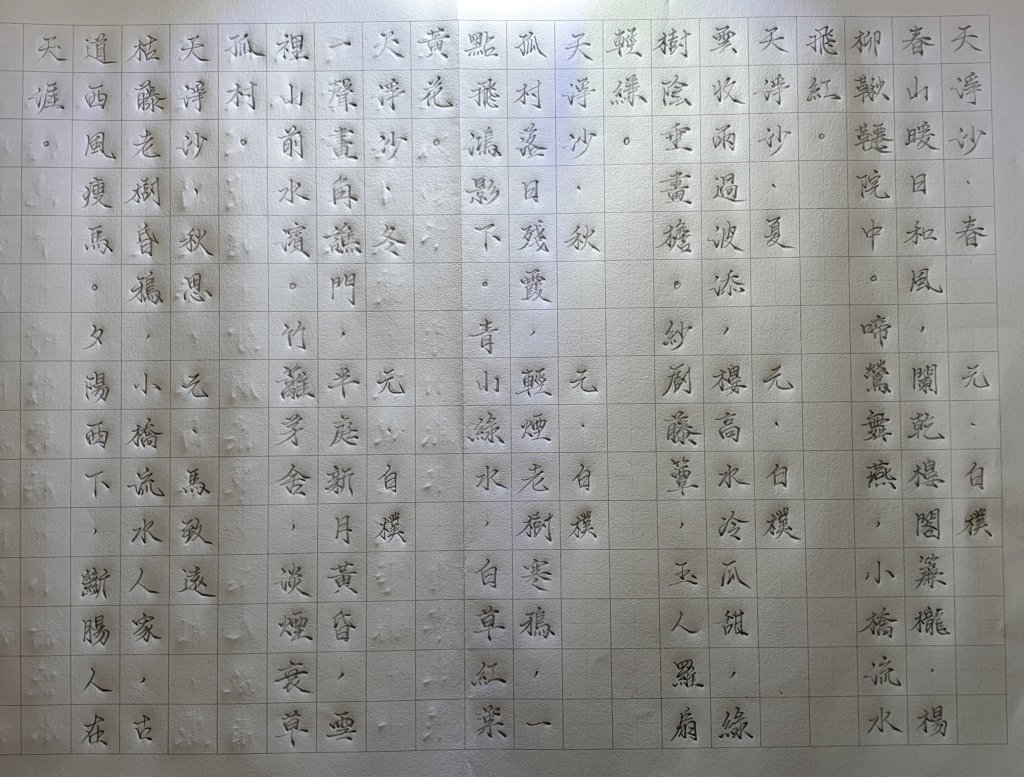 天淨沙·春 元·白樸
春山暖日和風，闌乾樓閣簾櫳，楊
柳鞦韆院中。啼鶯舞燕，小橋流水
飛紅。
天淨沙·夏 元·白樸
雲收雨過波添，樓高水冷瓜甜，綠
樹陰垂畫檐。紗廚藤簟，玉人羅扇
輕縑。
天淨沙·秋 元·白樸
孤村落日殘霞，輕煙老樹寒鴉，一
點飛鴻影下。青山綠水，白草紅葉
黃花。
天淨沙·冬 元·白樸
一聲畫角譙門，半庭新月黃昏，雪
裡山前水濱。竹籬茅舍，淡煙衰草
孤村。
天淨沙，秋思 元·馬致遠
枯藤老樹昏鴉，小橋流水人家，古
道西風瘦馬。夕陽西下，斷腸人在
天涯。